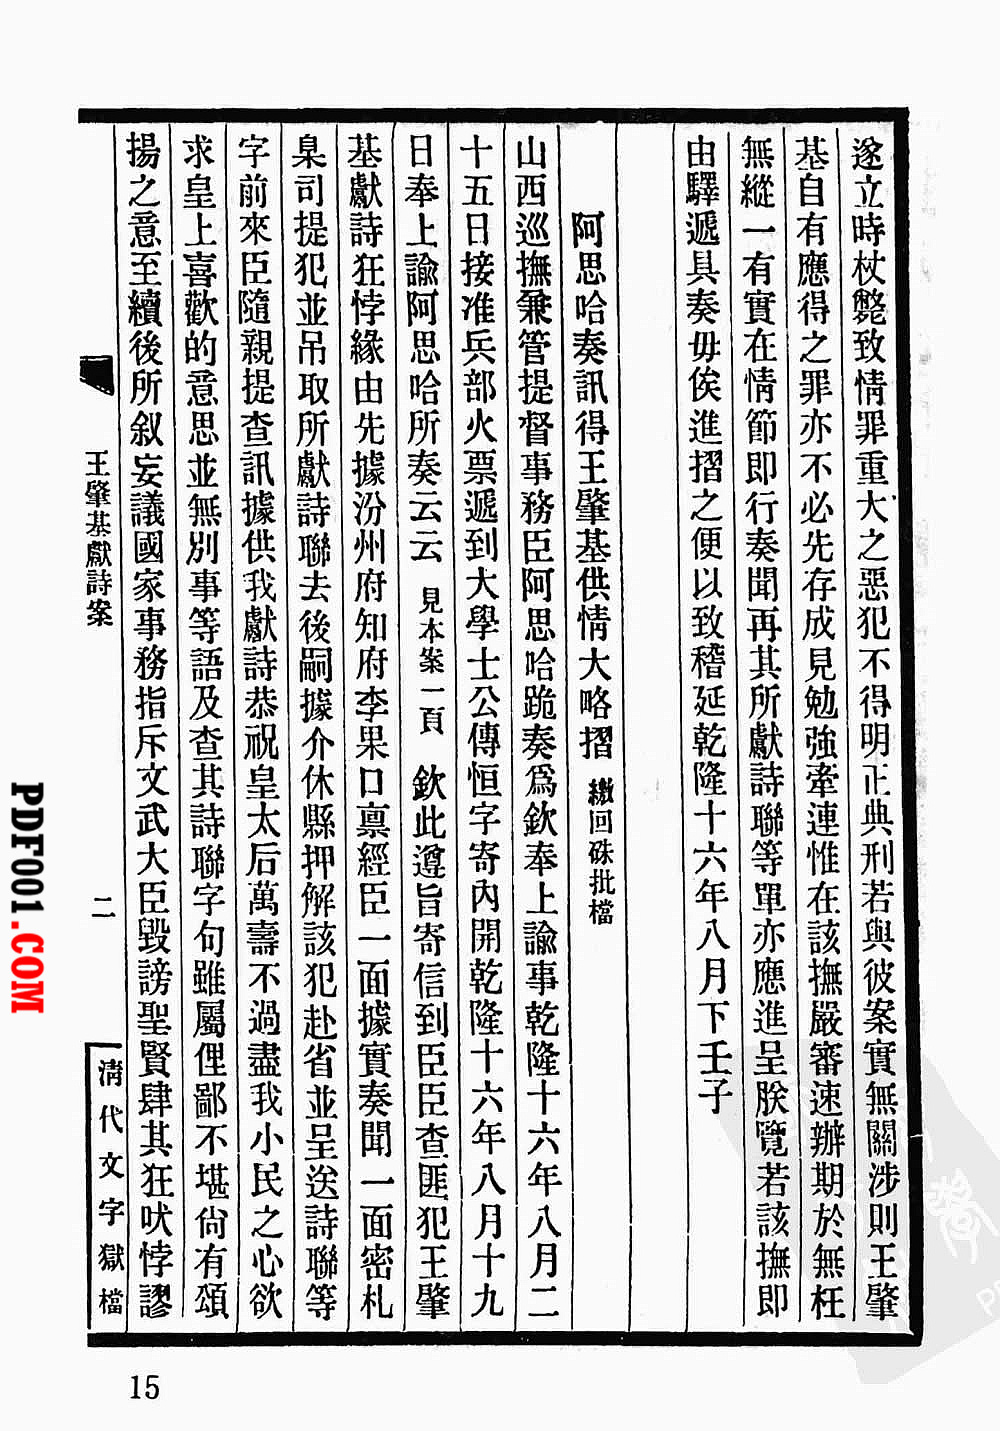 遂立時杖斃致情罪重大之惡犯不得明正典刑若與彼案實無關涉則王肇
基自有應得之罪亦不必先存成見勉強牽連惟在該撫嚴審速辦期於無枉
無縱一有實在情節即行奏聞再其所獻詩聯等單亦應進呈朕覽若該撫即
由驛遞具奏毋俟進摺之便以致稽延乾隆十六年八月下壬子
阿思哈奏訊得王肇基供情大略摺 繳回硃批檔
山西巡撫兼管提督事務臣阿思哈跪奏為欽奉上諭事乾隆十六年八月二
十五日接准兵部火票遞到大學士公傳恒字寄內開乾隆十六年八月十九
日奉上諭阿思哈所奏云云 見本案一頁 欽此遵旨寄信到臣臣查匪犯王肇
基獻詩狂悖緣由先據汾州府知府李果口禀經臣一面據實奏聞一面密札
臬司提犯並吊取所獻詩聯去後嗣據介休縣押解該犯赴省並呈送詩聯等
字前來臣隨親提查訊據供我獻詩恭祝皇太后萬壽不過盡我小民之心欲
求皇上喜歡的意思並無別事等語及查其詩聯字句雖屬俚鄙不堪尚有頌
揚之意至續後所叙妄議國家事務指斥文武大臣毀謗聖賢肆其狂吠悖謬
王肇基獻詩案
二
清代文字獄檔
15
PDF001.COM